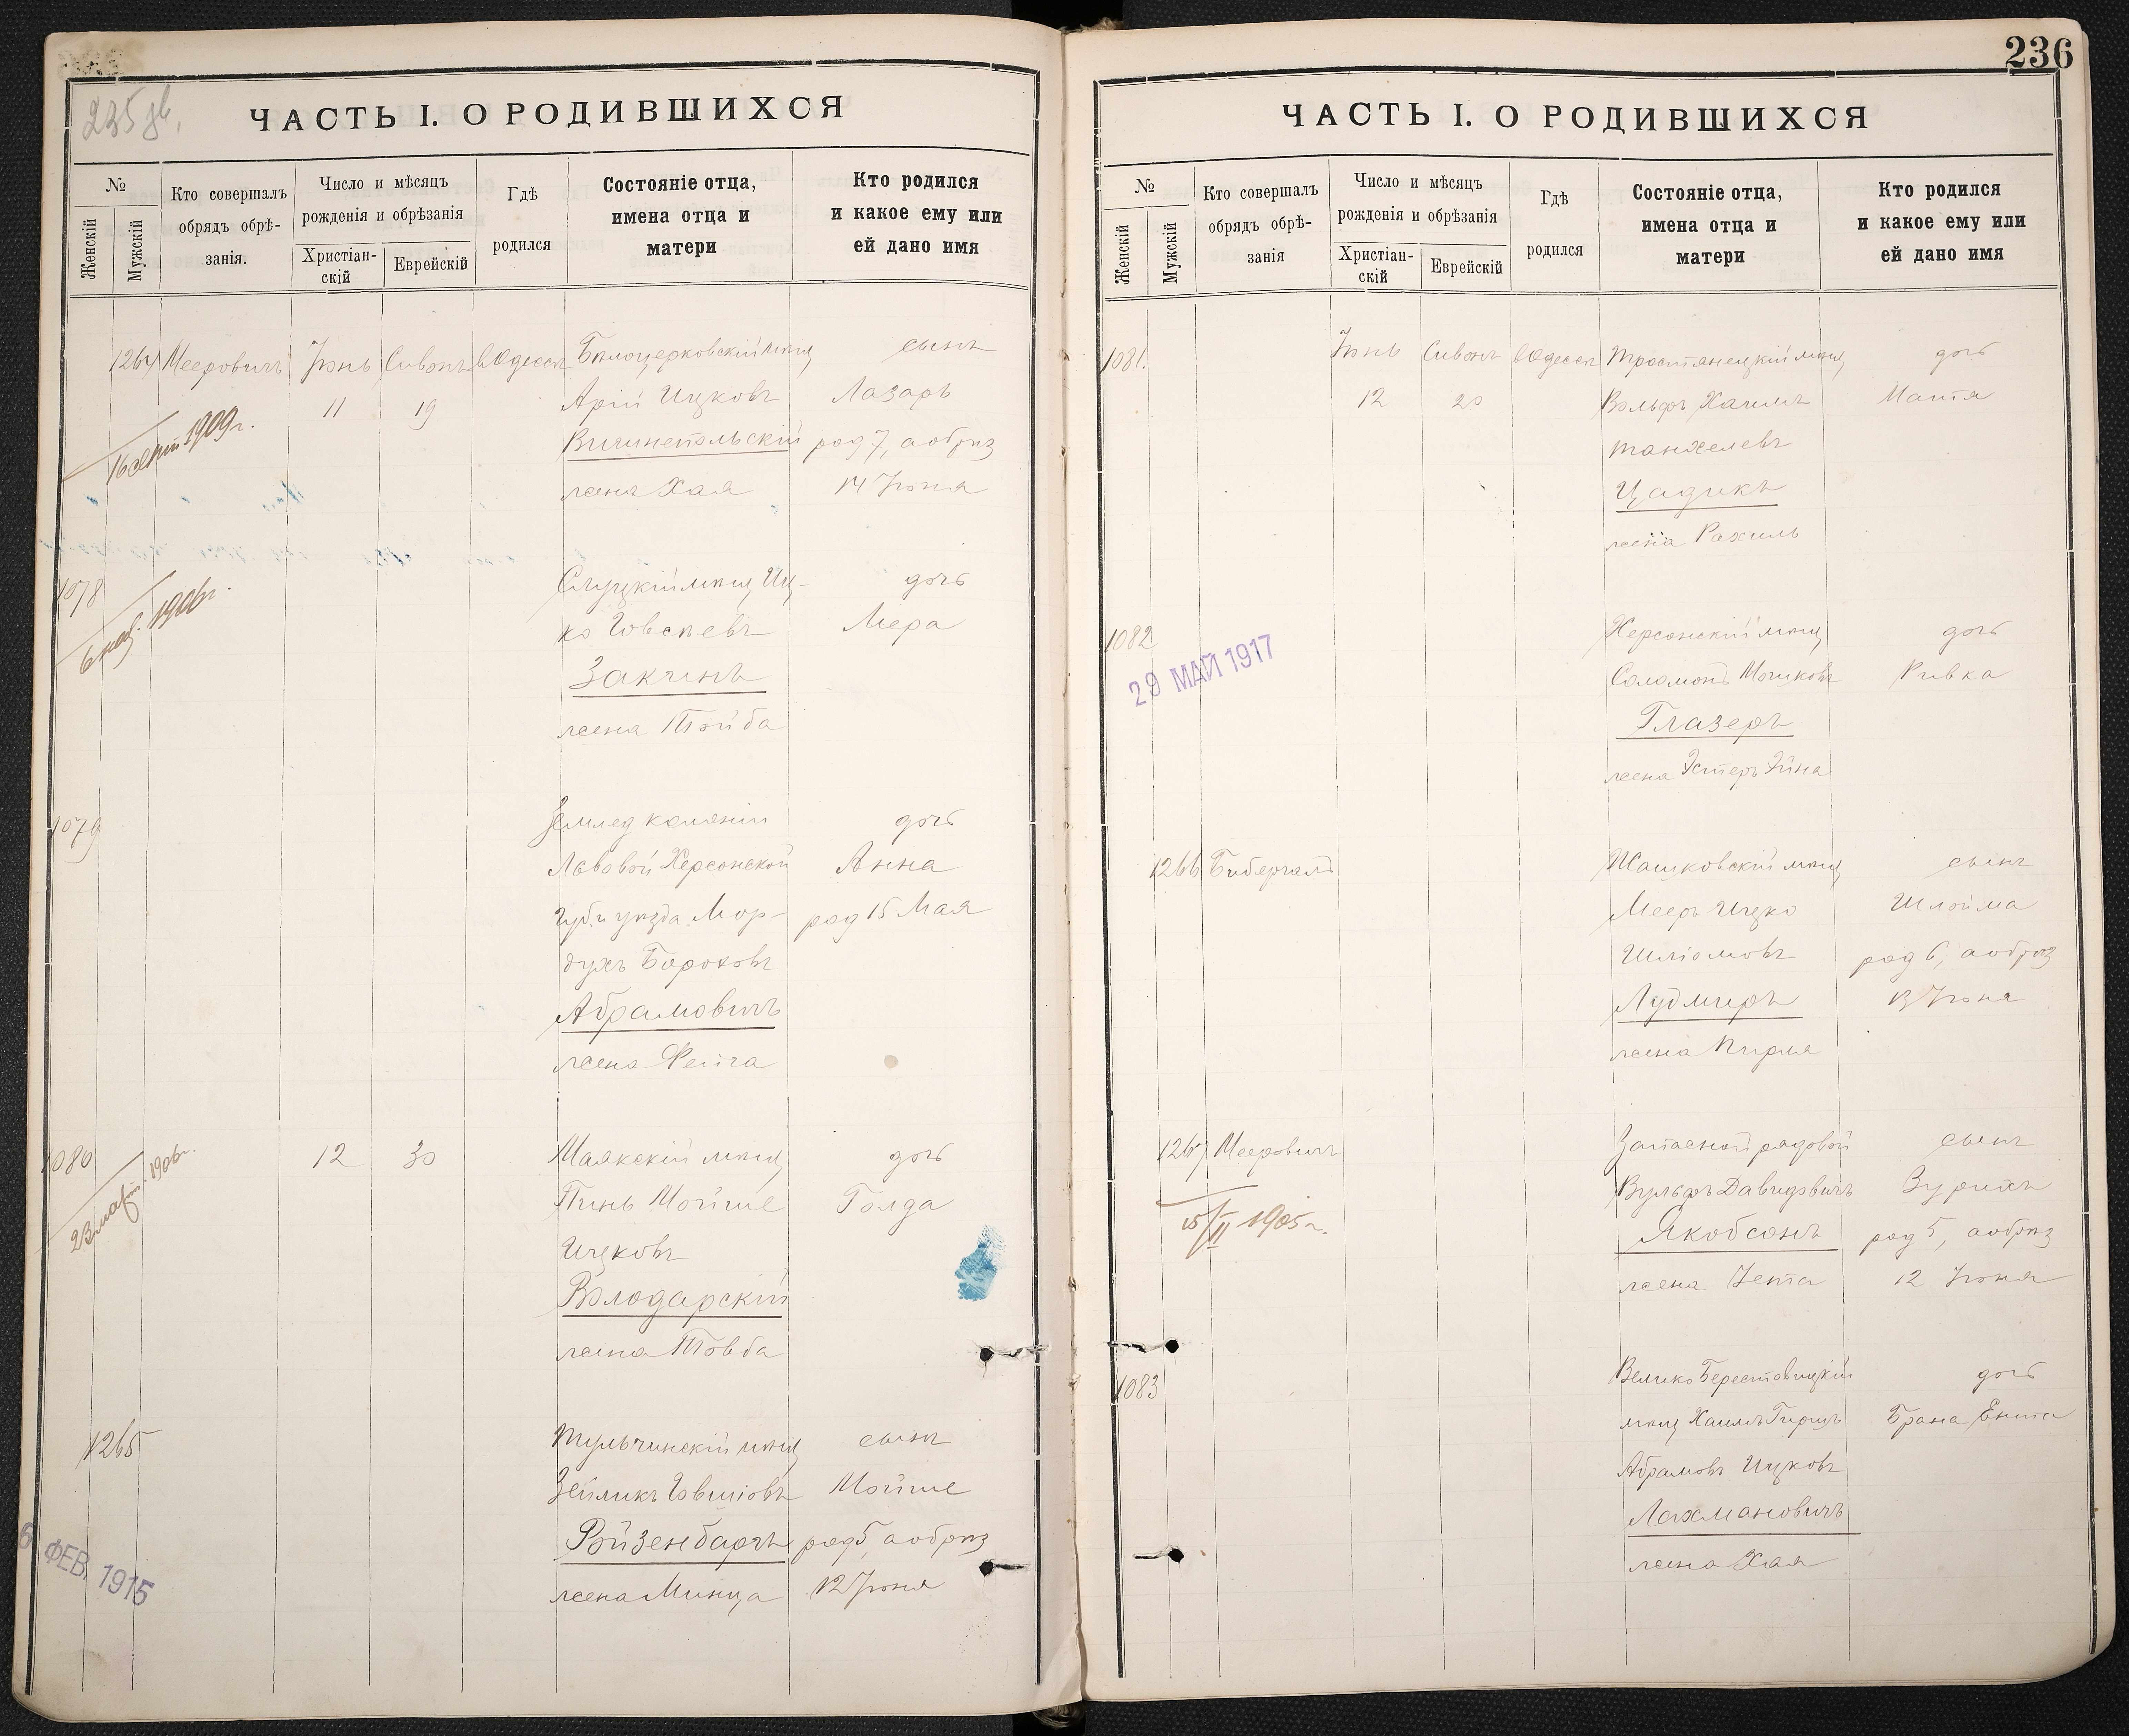 235 об.
ЧАСТЬ I. О РОДИВШИХСЯ
№
Женскій
Мужскій
Кто совершалъ
обрядъ обрѣ-
занія.
Число и мѣсяцъ
рожденія и обрѣзанія
Христіан-
скій
Еврейскій
Гдѣ
родился
Состояніе отца,
имена отца и
матери
Кто родился
и какое ему или
ей дано имя
1264 Мееровичъ Іюнь Сивонъ в Одессѣ Бѣлоцерковскій мѣщ сынъ
11 19 Арій Ицковъ Лазарь
16 сент 1909 г. род 7, а обрѣз
жена Хая 14 Іюня
1078 Слуцкій мѣщ Иц- дочь
6 1906 г. ко Іовсѣевъ Мера
Закчинъ
жена Тойба
1079 Землед колоніи дочь
Львовой Херсонской Анна
губ. и уѣзда Мор- род 15 Мая
духъ Бороховъ
Абрамовичъ
жена Фейга
1080 12 30 Маякскій мѣщ дочь
23 март. 1906 г. Пинь Мойше Голда
Ицковъ
Володарскій
жена Товба
1265 Тульчинскій мѣщ сынъ
Зейликъ Іовшіовъ Мойше
Войзенбаргъ род 5, а обрѣз
6 ФЕВ. 1915 жена Минца 12 Іюня
236
ЧАСТЬ I. О РОДИВШИХСЯ
№
Женскій
Мужскій
Кто совершалъ
обрядъ обрѣ-
занія
Число и мѣсяцъ
рожденія и обрѣзанія
Христіан-
скій
Еврейскій
Гдѣ
родился
Состояніе отца,
имена отца и
матери
Кто родился
и какое ему или
ей дано имя
1081. Іюнь Сивонъ в Одессѣ Тростянецкій мѣщ дочь
12 20 Вольфъ Хаимъ Мантя
Танхелевъ
Цадикъ
жена Рахиль
1082 Херсонскій мѣщ дочь
29 МАЙ 1917 Соломонъ Мошковъ Ривка
Глазеръ
жена Эстеръ Эйна
1266 Бибергалъ Жашковскій мѣщ сынъ
Мееръ Ицко Шлойма
Шліомовъ род 6, а обрѣз
Лудмиръ 13 Іюня
жена Пирля
1267 Мееровичъ Запасной рядовой сынъ
15/II 1905 г. Вульфъ Давидовичъ Зурихъ
Якобсонъ род 5, а обрѣз
жена Іета 12 Іюня
1083 Велико Берестовицкій дочь
мѣщ Хаимъ Гиршъ Брана Ента
Абрамовъ Ицковъ
Лахмановичъ
жена Хая